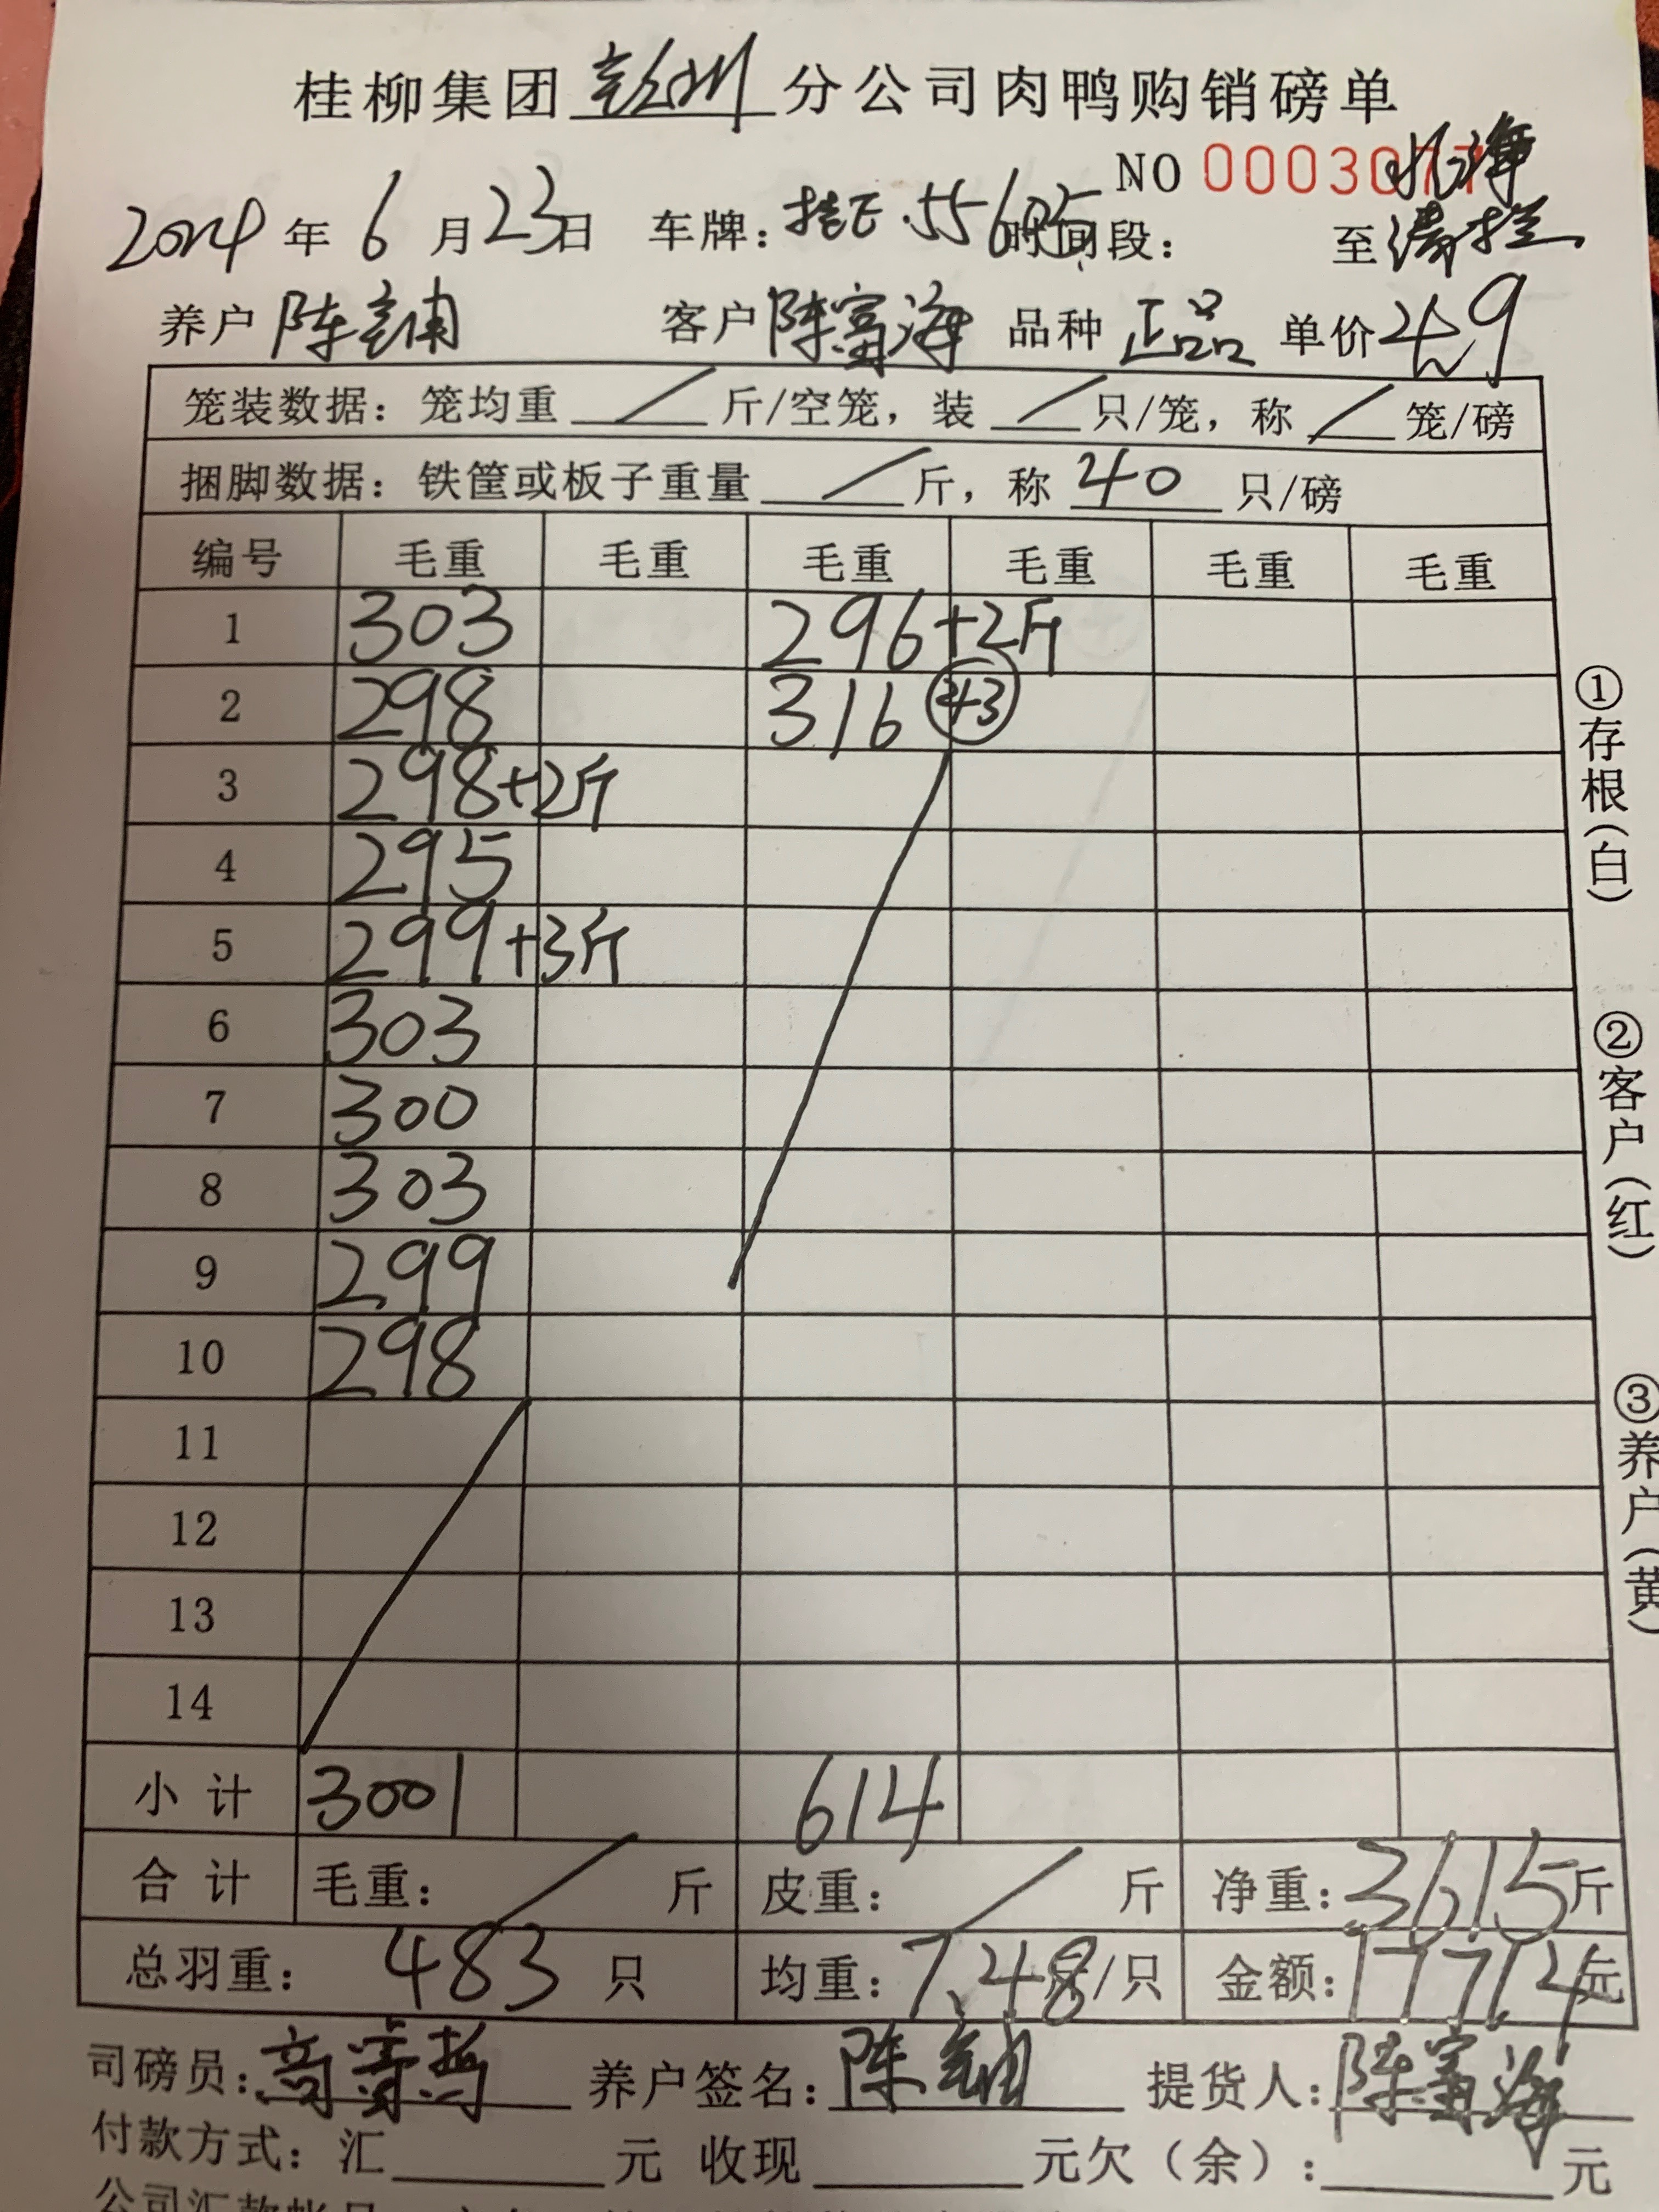 桂柳集团彭州分公司肉鸭购销磅单
NO 0003077
北海
2024年6月23日 车牌: 桂E·55605 时间段: 至
养户 陈 客户 陈富海 品种 正品 单价 4.9
笼装数据: 笼均重 / 斤/空笼, 装 / 只/笼, 称 / 笼/磅
捆脚数据: 铁筐或板子重量 / 斤, 称 40 只/磅
编号 毛重 毛重 毛重 毛重 毛重 毛重
1 303 296+2斤
2 298 316 43
3 298+2斤
4 295
5 299+3斤
6 303
7 300
8 303
9 299
10 298
11
12
13
14
小计 3001 614
合计 毛重: / 斤 皮重: / 斤 净重: 3615斤
总羽重: 483 只 均重: 7.48/只 金额: 17714元
司磅员: 养户签名: 陈 提货人: 陈富海
付款方式: 汇 元 收现 元欠(余): 元
①存根(白)
②客户(红)
③养户(黄)